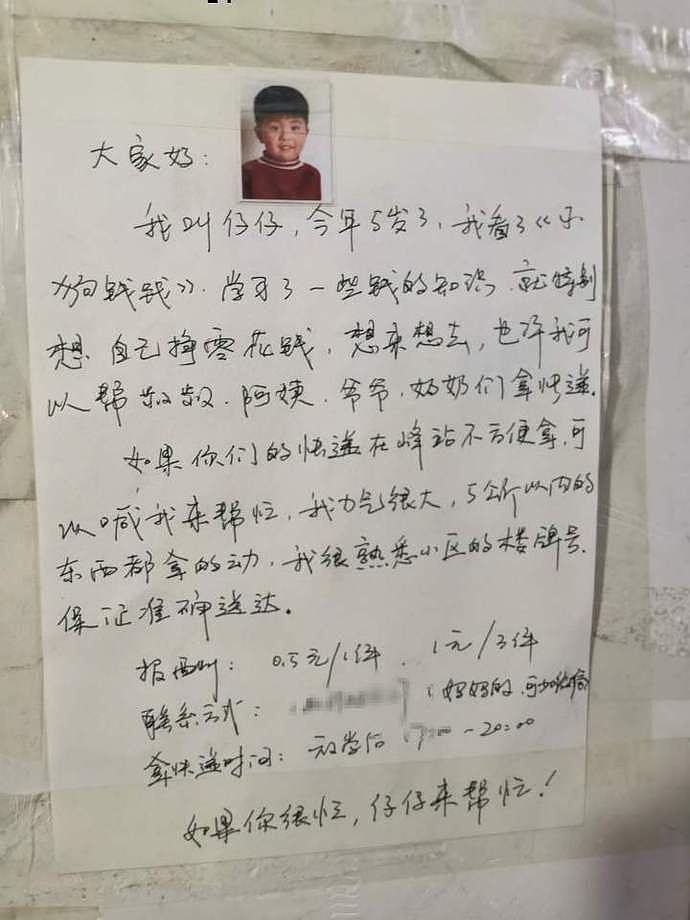 大家好:
我叫仔仔,今年5岁了,我看了《小
狗钱钱》.学习了一些钱的知识.就特别
想自己挣零花钱,想来想去,也许我可
以帮叔叔.阿姨.爷爷.奶奶们拿快递.
如果你们的快递在峰站不方便拿,可
以喊我来帮忙,我力气很大,5公斤以内的
东西都拿的动,我很熟悉小区的楼牌号.
保证准确送达.
报酬: 0.5元/1件. 1元/3件
联系方式: (妈妈的.可加微信
拿快递时间: 放学后 17:00-20:00
如果你很忙,仔仔来帮忙!